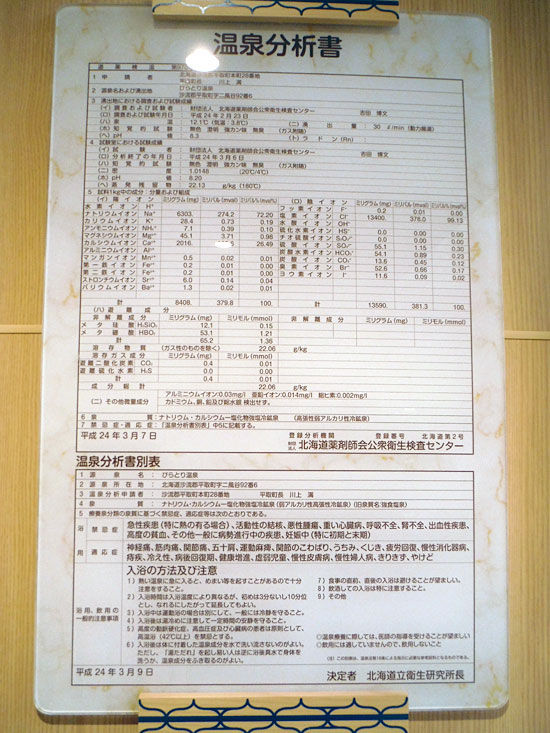 温泉分析書
1 申請者 北海道沙流郡平取町本町28番地
平取町長 川上 満
2 温泉名および湧出地 びらとり温泉
沙流郡平取町字二風谷92番6
3 湧出地における調査および試験成績
(イ) 調査および試験者 財団法人 北海道薬剤師会公衆衛生検査センター 吉田 博文
(ロ) 調査および試験年月日 平成24年2月23日
(ハ) 泉温 12.1℃ (気温:3.8℃) (ニ) 湧出量 30 ℓ/min (動力揚湯)
(ホ) 知覚的試験 無色 澄明 強カン味 無臭 (ガス附随) (ト) ラドン (Rn)
(ヘ) pH値 8.3
4 試験室における試験成績
(イ) 試験者 財団法人 北海道薬剤師会公衆衛生検査センター 吉田 博文
(ロ) 分析終了の年月日 平成24年3月6日
(ハ) 知覚的試験 無色 澄明 強カン味 無臭 (ガス附随)
(ニ) 密度 1.0148 (20℃/4℃)
(ホ) pH値 8.20
(ヘ) 蒸発残留物 22.13 g/kg (180℃)
5 試料1kg中の成分:分量および組成
(イ) 陽イオン ミリグラム(mg) ミリバル(mval) ミリバル%(mval%)
水素イオン H+
ナトリウムイオン Na+ 6303. 274.2 72.20
カリウムイオン K+ 28.4 0.73 0.19
アンモニウムイオン NH4+ 7.1 0.39 0.10
マグネシウムイオン Mg2+ 45.1 3.71 0.98
カルシウムイオン Ca2+ 2016. 26.49
アルミニウムイオン Al3+
マンガンイオン Mn2+ 0.5 0.02 0.01
第一鉄イオン Fe2+ 0.2 0.01 0.00
第二鉄イオン Fe3+ 0.2 0.01 0.00
ストロンチウムイオン Sr2+ 6.0 0.14 0.04
バリウムイオン Ba2+ 1.3 0.02 0.01
計 8408. 379.8 100.
(ロ) 陰イオン ミリグラム(mg) ミリバル(mval) ミリバル%(mval%)
フッ素イオン F- 0.2 0.01 0.00
塩素イオン Cl- 13400. 378.0 99.13
水酸イオン OH-
硫化水素イオン HS-
チオ硫酸イオン S2O3 2-
硫酸イオン SO4 2- 55.1 1.15 0.30
炭酸水素イオン HCO3- 54.1 0.89 0.23
炭酸イオン CO3 2- 13.6 0.45 0.12
臭素イオン Br- 52.6 0.66 0.17
ヨウ素イオン I- 11.6 0.09 0.02
計 13590. 381.3 100.
(ハ) 遊離成分
非解離成分 ミリグラム(mg) ミリモル(mmol) 非解離成分 ミリグラム(mg) ミリモル(mmol)
メタ硅酸 H2SiO3 12.1 0.15
メタ硼酸 HBO2 53.1 1.21
計 65.2 1.36
溶存物質 (ガス性のものを除く) 22.06 g/kg
溶存ガス成分 ミリグラム(mg) ミリモル(mmol)
遊離二酸化炭素 CO2 0.4 0.01
遊離硫化水素 H2S 0.0 0.00
計 0.4 0.01
成分総計 22.06 g/kg
(ニ) その他微量成分 アルミニウムイオン:0.03mg/ℓ 亜鉛イオン:0.014mg/ℓ 総ヒ素:0.002mg/ℓ
カドミウム、銅、鉛及び総水銀 検出せず。
6 泉質:ナトリウム・カルシウム-塩化物強塩冷鉱泉 (高張性弱アルカリ性冷鉱泉)
7 禁忌症・適応症:「温泉分析書別表」中5に記載する。
平成24年3月7日 登録分析機関 登録番号 北海道第2号
財団法人 北海道薬剤師会公衆衛生検査センター
温泉分析書別表
1 源泉名 びらとり温泉
2 源泉所在地 北海道沙流郡平取町字二風谷92番6
3 温泉分析申請者 沙流郡平取町本町28番地 平取町長 川上 満
4 泉質 ナトリウム・カルシウム-塩化物強塩冷鉱泉(弱アルカリ性高張性冷鉱泉) (旧泉質名:強食塩泉)
5 療養泉分類の泉質に基づく禁忌症、適応症等は次のとおりである。
浴用 禁忌症 急性疾患(特に熱の有る場合)、活動性の結核、悪性腫瘍、重い心臓病、呼吸不全、腎不全、出血性疾患、
高度の貧血、その他一般に病勢進行中の疾患、妊娠中(特に初期と末期)
適応症 神経痛、筋肉痛、関節痛、五十肩、運動麻痺、関節のこわばり、うちみ、くじき、疲労回復、慢性消化器病、
痔疾、冷え性、病後回復期、健康増進、虚弱児童、慢性皮膚病、慢性婦人病、きりきず、やけど
浴用、飲用の一般的注意事項
入浴の方法及び注意
1) 熱い温泉に急に入ると、めまい等を起すことがあるので十分注意をすること。
2) 入浴時間は入浴温度により異なるが、初めは3分ないし10分位とし、なれるにしたがって延長してもよい。
3) 入浴中は運動浴の場合は別にして、一般には冷静を守ること。
4) 入浴後は湯冷めに注意して一定時間の安静を守ること。
5) 高度の動脈硬化症、高血圧症及び心臓病の患者は原則として、高温浴(42℃以上)を禁忌とする。
6) 入浴後は体に付着した温泉成分を水で洗い流さないのがよい。
ただし、「湯ただれ」を起し易い人は逆に浴後真水で身体を洗うか、温泉成分をふき取るのがよい。
7) 食事の直前、直後の入浴は避けることが望ましい。
8) 飲酒しての入浴は特に注意すること。
9) その他
○温泉療養に際しては、医師の指導を受けることが望ましい
○飲用には適していませんので、飲用しないこと
平成24年3月9日 決定者 北海道立衛生研究所長